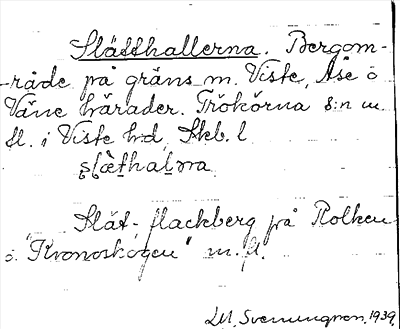 Slätthallerna. Bergom-
råde på gräns m. Viste, Åse o
Väne härader. Trökörna s:n m
fl. i Viste hd, Skb. l
Slät-, flackberg på Rolken
o. "Kronoskogen" m. fl.
Svenungson, 1939.